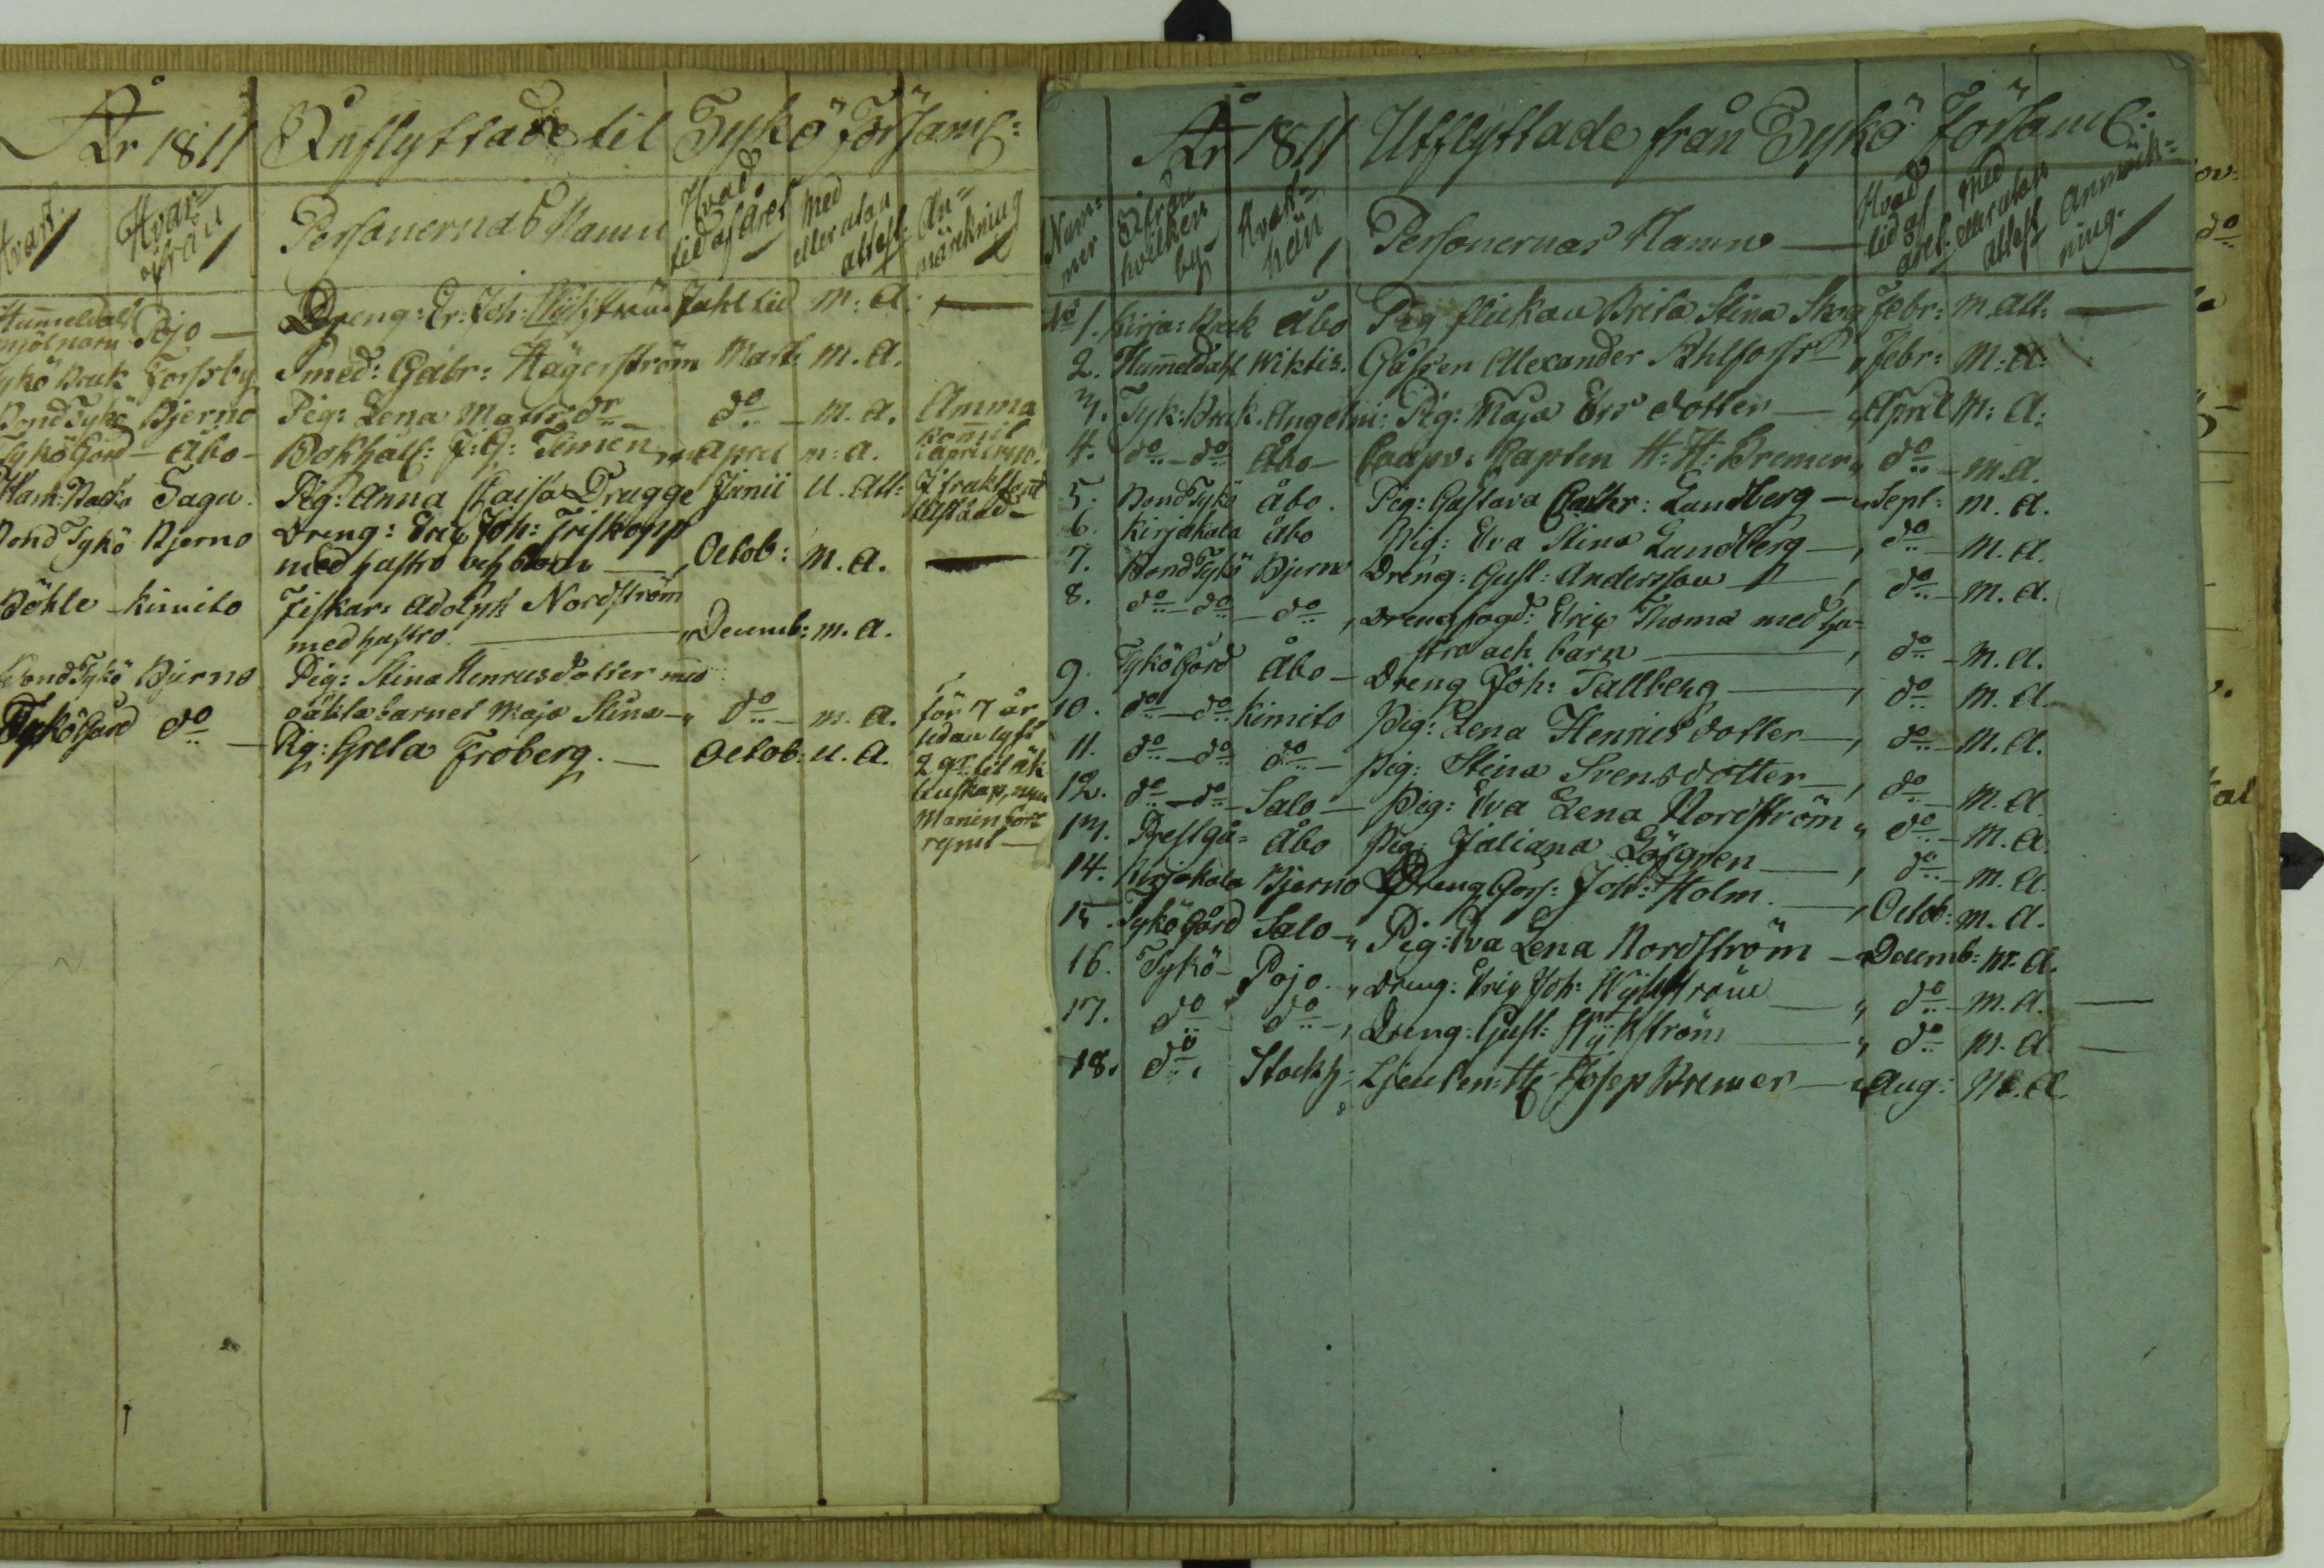 År 1811 Inflyttade til Tykö Församl:
Hvart. Hvarifrån Personernas Namn Hvad tid af året Med eller utan attest Anmärkning
Hummeldals mjölnarn Pojo — Dreng: Er: Joh: Wykström Jahl tid m: a. —
Tykö Bruk Forssby Smed: Gabr: Hägerström Mart. m. a.
Bond Tykö Bjerno Pig: Lena Matts dr — do — m. a. Amma
Tykö Gård — Åbo — Bokhall: F: G: Temen „ April m: a. kommit i april 1810.
Ham: Backa Sagu. Pig: Anna Caisa Drugge Junii U. Att:
Bond Tykö Bjerno Dreng: Eric Joh: Friskopp
med hustro och barn — Octob: m. a. —
Böhle — Kimito Fiskar: Adolph Nordström
med hustro — „ Decemb: m. a.
Bond Tykö Bjerno Pig: Stina Henricsdotter med
oäkta barnet Maja Stina — „ do — m. a. för 7 år
Tykö Gård do — Pig: Greta Froberg. — Octob: u. a. sedan lyst
2 gr til äk
tenskap, men
Manen bort
rymt —
År 1811 Utflyttade från Tykö Församl:
Nummer Ifrån hvilken by Hvarthän Personernas Namn — Hvad tid af året. Med eller utan attest Anmärkning.
No 1. Kirja: Bruk Åbo Pig flickan Brita Stina Skog Febr: M. Att: —
2. Hummeldahl Wiktis. Gåssen Alexander Ahlforss — „ Febr: M: a:
3. Tyk: Bruk. Angelni: Pig: Maja Ers dotter — „ April M: A:
4. do — do Åbo — Caapv: Kapten H: H: Bremer „ do — m. a.
5. Bond Tykö Åbo. Pig: Gustava Cathr: Lundberg — „ Sept: m. a.
6. Kirjakala Åbo Pig: Eva Stina Lundberg — , do — M. a.
7. Bond Tykö Bjerno Dreng: Gust: Andersson — , do — M. a.
8. do — do — do , Drengfogd: Eric Thoma med hu-
stro och barn — , do — M. a.
9. Tykö Gård Åbo — Dreng Joh: Tallberg — , do M. a.
10. do — do Kimito Pig: Lena Henricsdotter — , do — M. a.
11. do — do do — Pig: Stina Svensdotter — , do — M. a.
12. do — do — Salo — Pig: Eva Lena Nordström „ do — M. a.
13. Prestgå- Åbo Pig: Juliana Löfgren — , do — M. a.
14. Kirjakala Bjerno Dreng Goss: Joh: Holm. — , Octob: m. a.
15. Tykö Gård Salo — „ Pig: Eva Lena Nordström — Decemb: M. a.
16. Tykö — Pojo. „ Dreng: Eric Joh: Wykström — „ do — M. a. —
17. do — do — , Dreng: Gust: Wykström — „ do M. a. —
18. do. Stockh: Ljeuten: H: Josep Bremer — „ Aug: M. a.